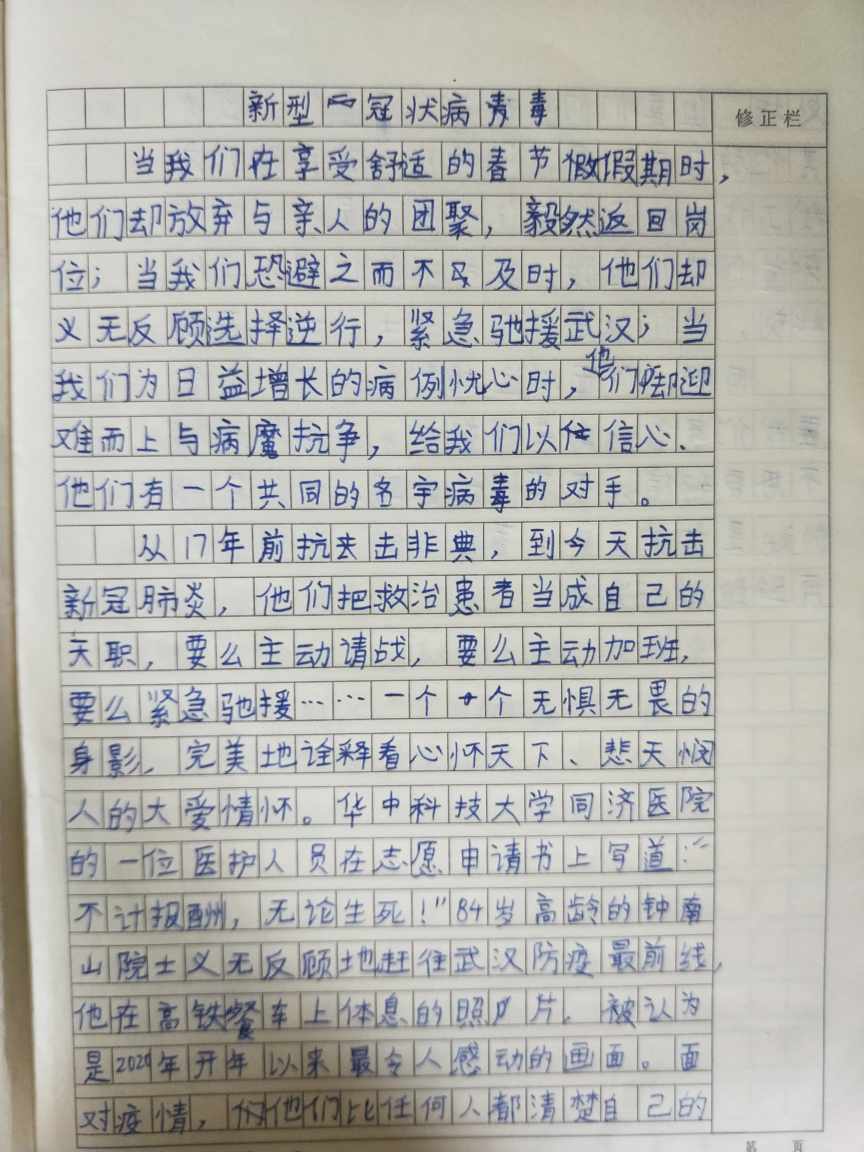 新型冠状病毒
修正栏
当我们在享受舒适的春节假期时，
他们却放弃与亲人的团聚，毅然返回岗
位；当我们恐避之而不及时，他们却
义无反顾选择逆行，紧急驰援武汉；当
我们为日益增长的病例忧心时，他们却迎
难而上与病魔抗争，给我们以信心、
他们有一个共同的名字病毒的对手。
从17年前抗击非典，到今天抗击
新冠肺炎，他们把救治患者当成自己的
天职，要么主动请战，要么主动加班，
要么紧急驰援……一个个无惧无畏的
身影，完美地诠释着心怀天下、悲天悯
人的大爱情怀。华中科技大学同济医院
的一位医护人员在志愿申请书上写道："
不计报酬，无论生死！"84岁高龄的钟南
山院士义无反顾地赶往武汉防疫最前线，
他在高铁餐车上休息的照片，被认为
是2020年开年以来最令人感动的画面。面
对疫情，他们比任何人都清楚自己的
第 页